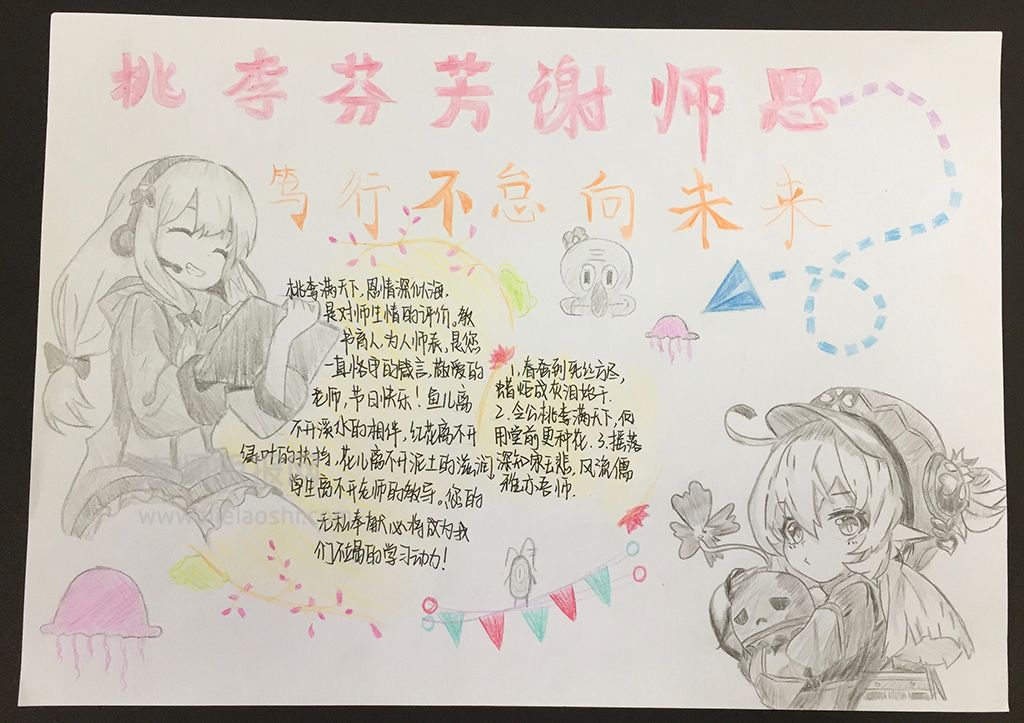 桃李芬芳谢师恩
笃行不怠向未来
桃李满天下,恩情深似海.
是对师生情的评价。教
书育人,为人师表,是您
一直恪守的箴言,敬爱的
老师,节日快乐!鱼儿离
不开溪水的相伴,红花离不开
绿叶的扶持,花儿离不开泥土的滋润
学生离不开老师的教导。您的
无私奉献必将成为我
们不竭的学习动力!
1,春蚕到死丝方尽,
蜡炬成灰泪始干.
2.令公桃李满天下,何
用堂前更种花.3.摇落
深知宋玉悲,风流儒
雅亦吾师.